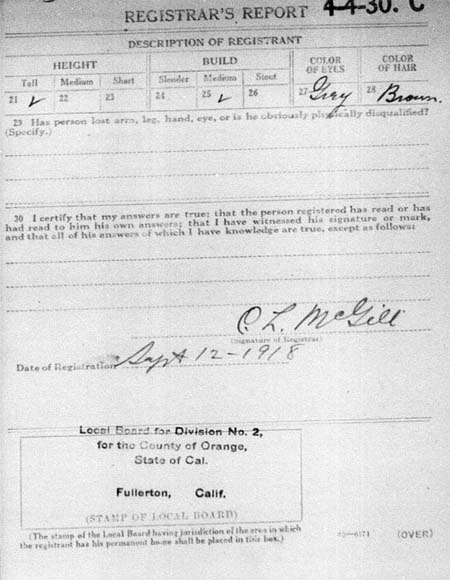 REGISTRAR'S REPORT 4-4-30. C
DESCRIPTION OF REGISTRANT
HEIGHT BUILD COLOR OF EYES COLOR OF HAIR
Tall Medium Short Slender Medium Stout
21 ✓ 22 23 24 25 ✓ 26 27 Grey 28 Brown.
29 Has person lost arm, leg, hand, eye, or is he obviously physically disqualified?
(Specify.)
30 I certify that my answers are true; that the person registered has read or has
had read to him his own answers; that I have witnessed his signature or mark,
and that all of his answers of which I have knowledge are true, except as follows:
C. L. McGill
(Signature of Registrar)
Date of Registration Sept 12-1918
Local Board for Division No. 2,
for the County of Orange,
State of Cal.
Fullerton, Calif.
(STAMP OF LOCAL BOARD)
(The stamp of the Local Board having jurisdiction of the area in which
the registrant has his permanent home shall be placed in this box.)
(OVER)